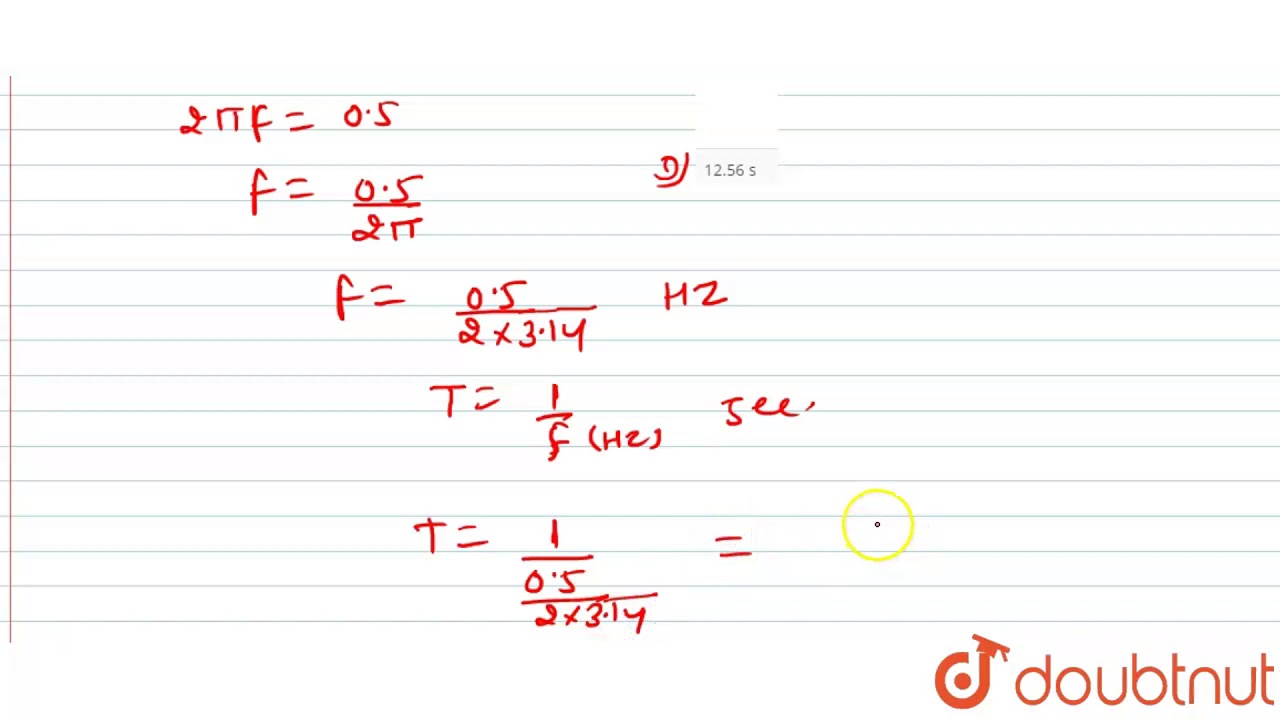 2πf = 0.5
D) 12.56 s
f = 0.5/2π
f = 0.5/2×3.14 HZ
T = 1/f (HZ) sec.
T = 1/0.5/2×3.14 =
doubtnut